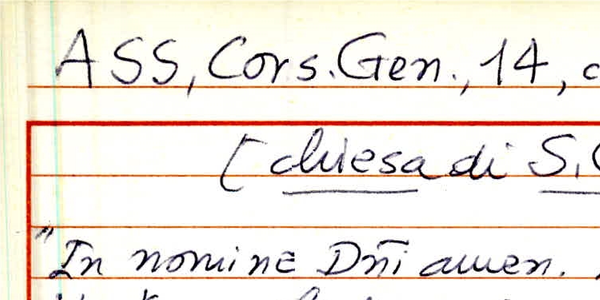 ASS, Cons. Gen., 14,
[chiesa di S.
"In nomine Dñi amen.